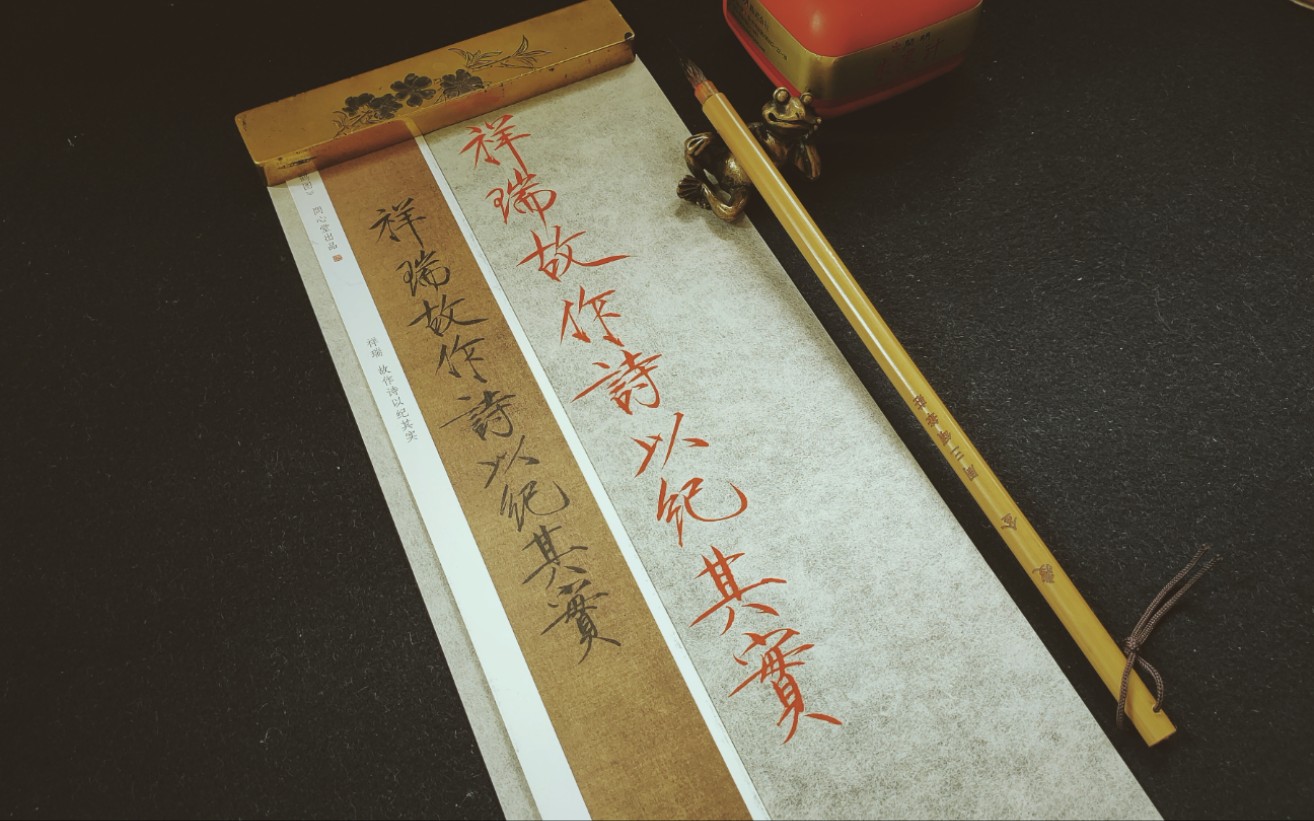 祥瑞故作詩以紀其實
祥瑞故作詩以紀其實
祥瑞 故作诗以纪其实
问心堂出品